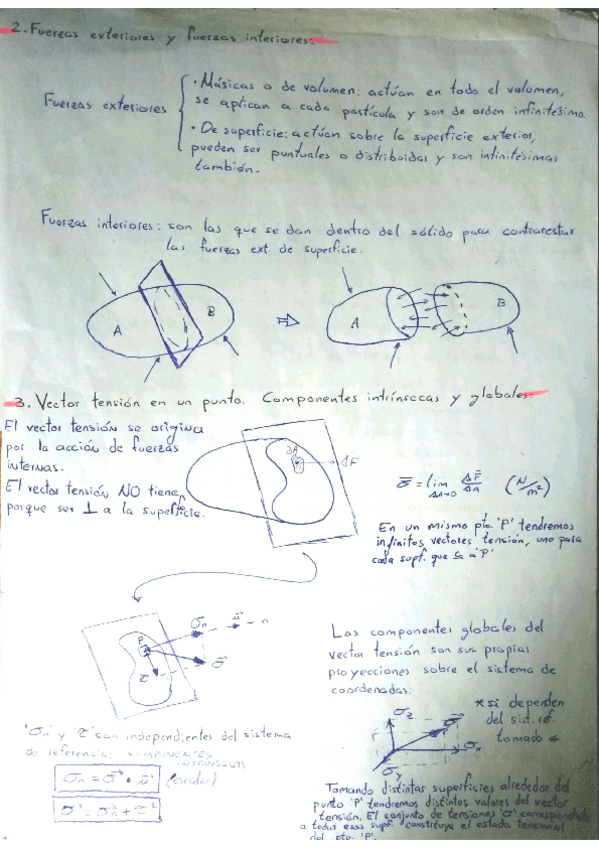 2. Fuerzas exteriores y fuerzas interiores:
Fuerzas exteriores
· Másicas o de volumen: actúan en todo el volumen,
se aplican a cada partícula y son de orden infinitésimo.
· De superficie: actúan sobre la superficie exterior,
pueden ser puntuales o distribuidas y son infinitésimas
también.
Fuerzas interiores: son las que se dan dentro del sólido para contrarestar
las fuerzas ext. de superficie.
A B ⇒ A B
3. Vector tensión en un punto. Componentes intrínsecas y globales:
El vector tensión se origina
por la acción de fuerzas
internas.
El vector tensión NO tiene
porque ser ⊥ a la superficie.
ΔA ΔF
σ̄ = lim ΔA→0 ΔF̄/ΔA (N/m²)
En un mismo pto. 'P' tendremos
infinitos vectores tensión, uno para
cada supf. que a 'P'
P σn ū n
σ̄
τ
Las componentes globales del
vector tensión son sus propias
proyecciones sobre el sistema de
coordenadas.
* si dependen
del sist. ref.
tomado *
σz σ̄ σx
σy
'σn' y 'τ' son independientes del sistema
de referencia. COMPONENTES
INTRÍNSECAS
σn = σ̄ · ū (escalar)
σ² = σn² + τ²
Tomando distintas superficies alrededor del
punto 'P' tendremos distintos valores del vector
tensión. El conjunto de tensiones 'σ' correspondientes
a todas esas supf. constituye el estado tensional
del pto. 'P'.